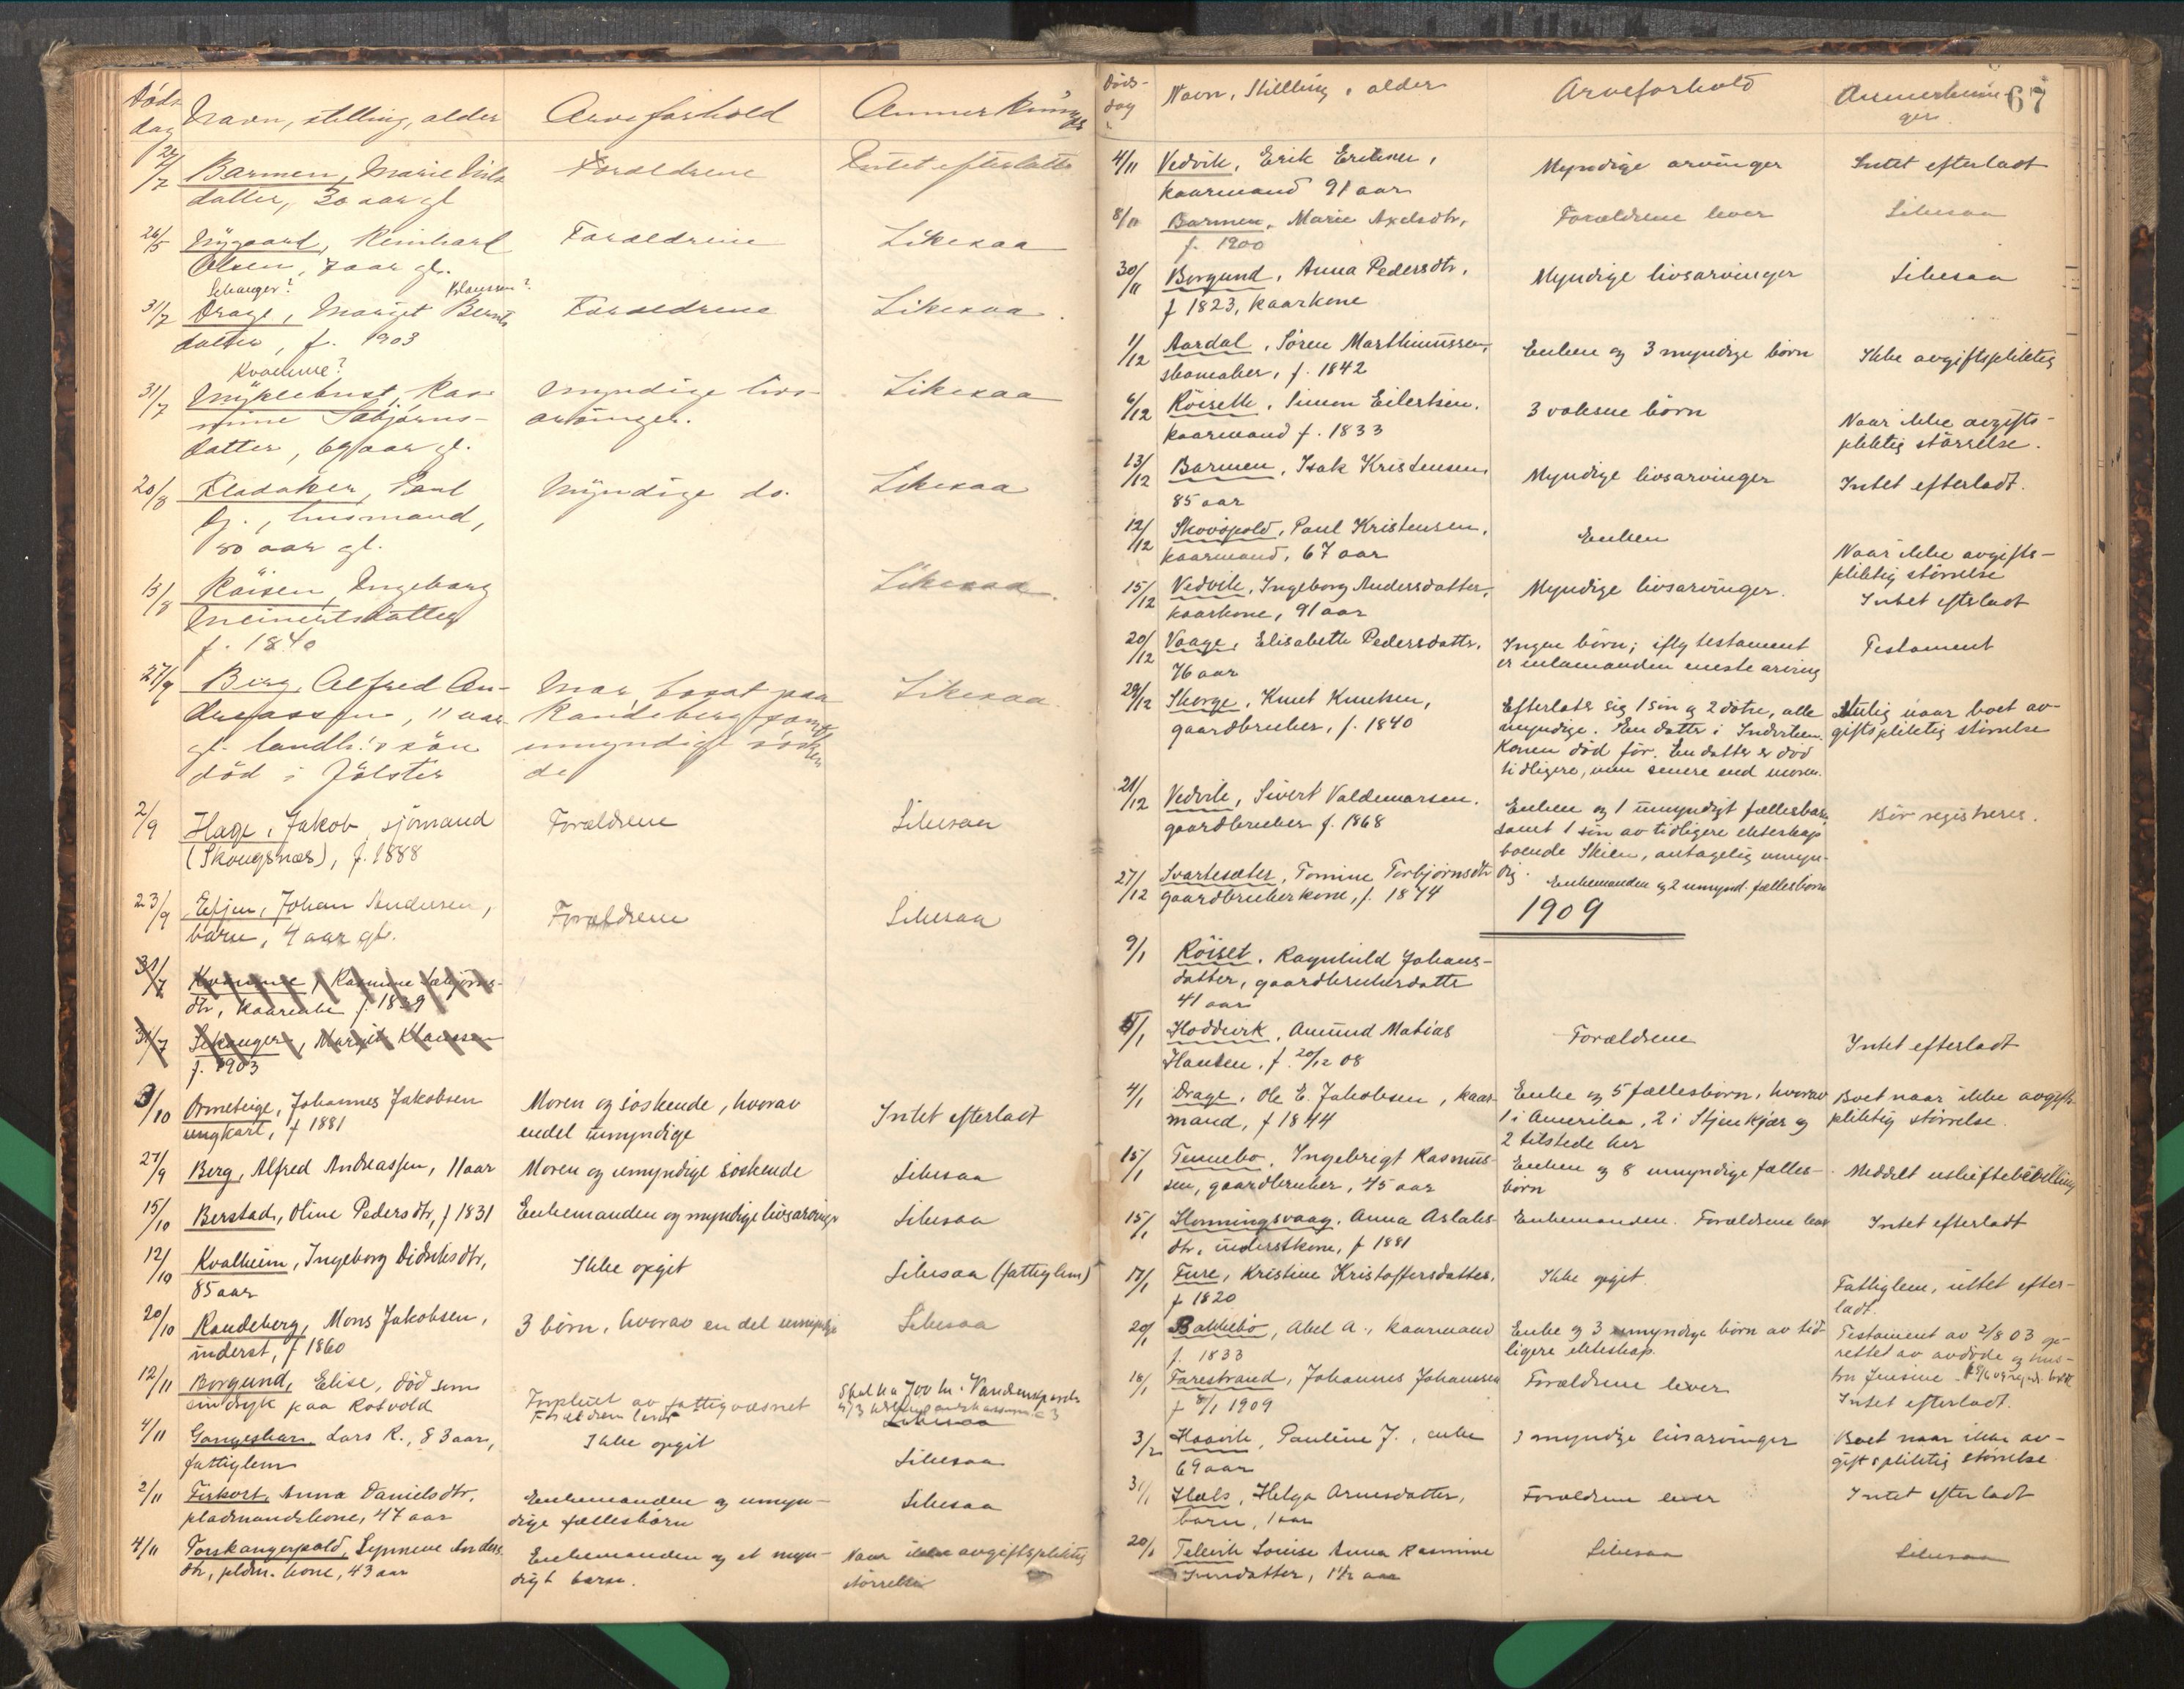 Døds dag
Navn, stilling, alder
Arveforhold
Anmerkninger
27/7 Barmen, Marie Nils
datter, 30 aar gl
Forældrene
Intet efterlatt
26/5 Nygaard, Reinhard
Olsen, 7 aar gl.
Forældrene
Likesaa
Sehanger? Klausen?
31/7 Drage, Margit Bernts
datter, f. 1903
Forældrene
Likesaa.
Kvamme?
31/7 Myklebust, Ras-
mine Sæbjørns-
datter, 69 aar gl.
Myndige livs-
arvinger.
Likesaa
20/8 Fladaker, Paul
husmand,
80 aar gl.
Myndige do.
Likesaa
13/8 Røisen, Ingeborg
Meinertsdatter
f. 1840
Likesaa.
27/9 Berg, Alfred An-
dreassen, 11 aar
gl. landh.s søn
død i Jølster
Mor, bosat paa
Randeberg samt
umyndige søsken
de
Likesaa.
2/9 Hage, Jakob sjømand
(Skougsnæs), f. 1888
Forældrene
Likesaa
23/9 Eijen, Johan Andersen,
barn, 4 aar gl.
Forældrene
Likesaa
31/7 Kvamme, Rasmine Sæbjørns-
dtr, kaarenke f. 1839
31/7 Sehanger, Margit Klausen
f. 1903
3/10 Ormeteige, Johannes Jakobsen
ungkarl, f 1881
Moren og søskende, hvorav
endel umyndige
Intet efterladt
27/9 Berg, Alfred Andreassen, 11 aar
Moren og umyndige søskende
Likesaa
15/10 Berstad, Oline Pedersdtr, f 1831
Enkemanden og myndige livsarvinger
Likesaa
12/10 Kvalheim, Ingeborg Didriksdtr,
85 aar
Ikke opgit
Likesaa (fattiglem)
20/10 Randeberg, Mons Jakobsen,
inderst, f 1860
3 børn, hvorav en del umyndige
Likesaa
12/11 Borgund, Elise, død som
sindsyk paa Rosvold
Forpleiet av fattigvæsnet
Forældrene lever
Skal ha 700 kr. i
Likesaa
4/11 Gangeskar Lars R., 83 aar,
fattiglem
Ikke opgit
Likesaa
2/11 Fiskort, Anna Danielsdtr,
pladsmandskone, 47 aar
Enkemanden og umyn-
dige fællesbørn
Likesaa
4/11 Torskangerpold, Synneve Anders
dtr, pldm. kone, 43 aar
Enkemanden og et myn-
digt barn.
Naar ikke avgiftspliktig
størrelse
Døds-
dag
Navn, Stilling, alder
Arveforhold
Anmerkninger
67
4/11 Vedvik, Erik Eriksen,
kaarmand 91 aar
Myndige arvinger
Intet efterladt
8/11 Barmen, Marie Axelsdtr,
f. 1900
Forældrene lever
Likesaa
30/11 Borgund, Anna Pedersdtr,
f 1823, kaarkone
Myndige livsarvinger
Likesaa
1/12 Aardal, Søren Marthinussen,
skomaker, f. 1842
Enken og 3 myndige børn
Ikke avgiftspliktig
6/12 Røiseth, Simon Eilertsen,
kaarmand f. 1833
3 voksne børn
Naar ikke avgifts-
pliktig størrelse.
13/12 Barmen, Isak Kristensen
85 aar
Myndige livsarvinger
Intet efterladt.
12/12 Skovspold, Paul Kristensen,
kaarmand, 67 aar
Enken
Naar ikke avgifts-
pliktig størrelse
15/12 Vedvik, Ingeborg Andersdatter,
kaarkone, 91 aar
Myndige livsarvinger.
Intet efterladt
20/12 Vaage, Elisabeth Pedersdatter,
76 aar
Ingen børn; iflg testament
er enkemanden eneste arving
Testament
29/12 Skorge, Knut Knutsen,
gaardbruker, f. 1840
Efterlater sig 1 søn og 2 døtre, alle
myndige. En datter i Inderøen.
Konen død før. En datter er død
tidligere, men senere end moren.
naar boet av-
giftspliktig størrelse
21/12 Vedvik, Sivert Valdemarsen,
gaardbruker f. 1868
Enken og 1 umyndigt fællesbarn
samt 1 søn av tidligere ekteskap
boende Skien, antagelig umyn-
dig.
Bør registreres.
27/12 Svartesæter, Tomine Torbjørnsdtr
gaardbrukerkone, f. 1874
Enkemanden og 2 umynd. fællesbørn
1909
9/1 Røiset, Ragnhild Johans-
datter, gaardbrukerdatter
41 aar
/1 Hoddevik, Amund Mathias
Hansen, f. 20/12 08
Forældrene
Intet efterladt
4/1 Drage, Ole E. Jakobsen, kaar-
mand, f 1844
Enke og 5 fællesbørn, hvorav
1 i Amerika, 2 i Stjenkjær og
2 tilstede her
Boet naar ikke avgifts-
pliktig størrelse.
15/1 Tennebø, Ingebrigt Rasmus-
sen, gaardbruker, 45 aar
Enken og 8 umyndige fælles-
børn
Meddelt uskiftebevilling
15/1 Honningsvaag, Anna Aslaks-
dtr, inderstkone, f 1881
Enkemanden. Forældrene lever
Intet efterladt
17/1 Fure, Kristine Kristoffersdatter,
f 1820
Ikke opgit.
Fattiglem, intet efter-
ladt.
20/1 Bakkebø, Abel A., kaarmand
f. 1833
Enke og 3 myndige børn av tid-
ligere ekteskap.
Testament av 2/8 03 op-
rettet av avdøde og hus-
tru Jensine
16/1 Farestrand, Johannes Johannssen
f 8/1 1909
Forældrene lever
Intet efterladt.
3/2 Haavik, Pauline J., enke
69 aar
3 myndige livsarvinger
Boet naar ikke av-
giftspliktig størrelse
31/1 Hals, Helga Arnesdatter,
barn, 1 aar
Forældrene lever
Intet efterladt
20/1 Tellevik Louise Anna Rasmine
datter, 1½ aar
Likesaa
Likesaa